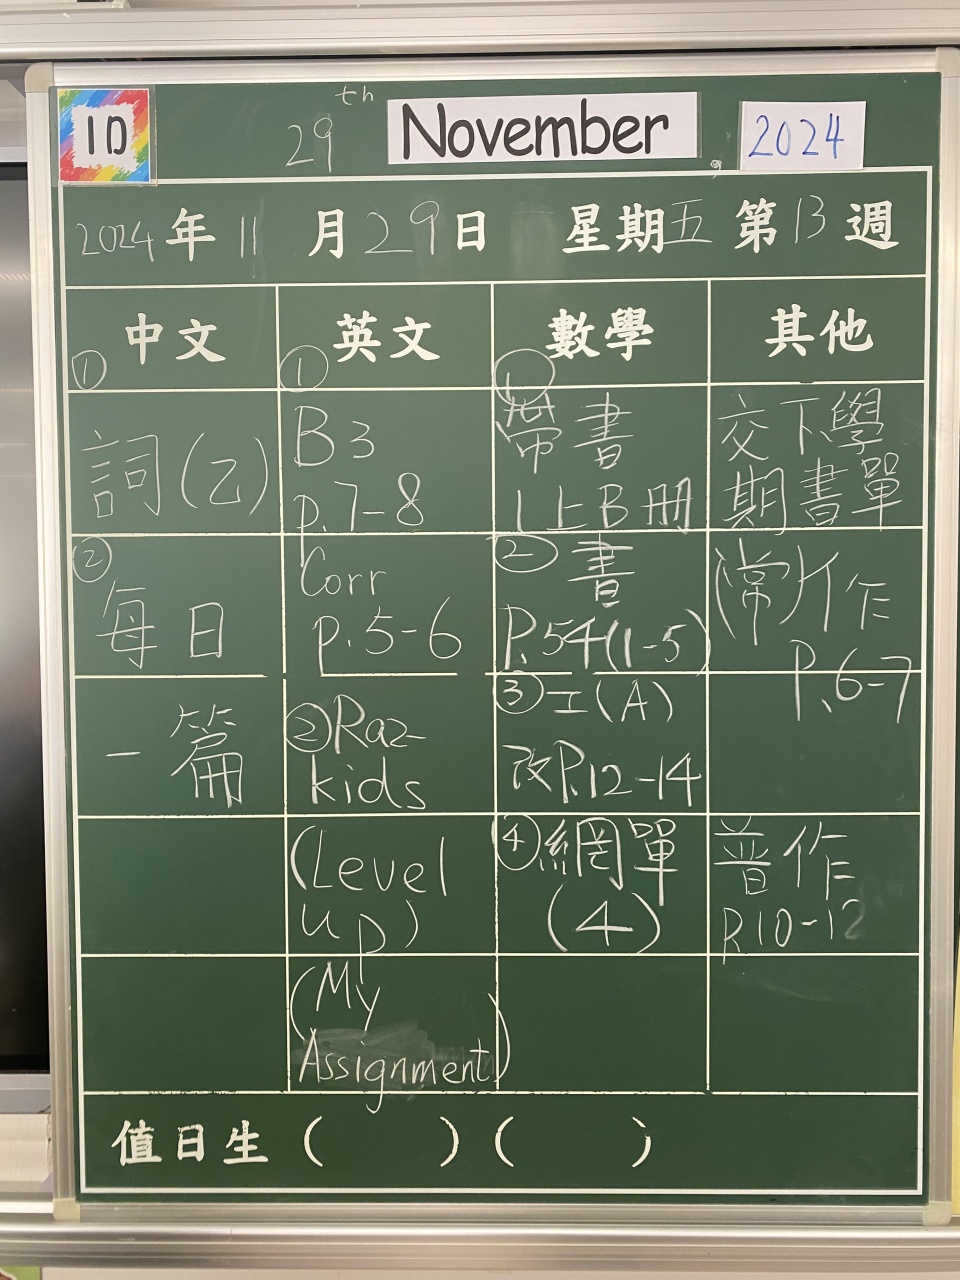 1D
29th November, 2024
2024年11月29日 星期五 第13週
中文
①
詞(乙)
②
每日
一篇
英文
①
B3
p.7-8
Corr
p.5-6
②Raz-
kids
(Level
up)
(My
Assignment)
數學
①
帶書
1上B冊
②書
P.54(1-5)
③工(A)
改P.12-14
④網單
(4)
其他
交下學
期書單
(常)作
P.6-7
普作
P.10-12
值日生 (  ) (  )